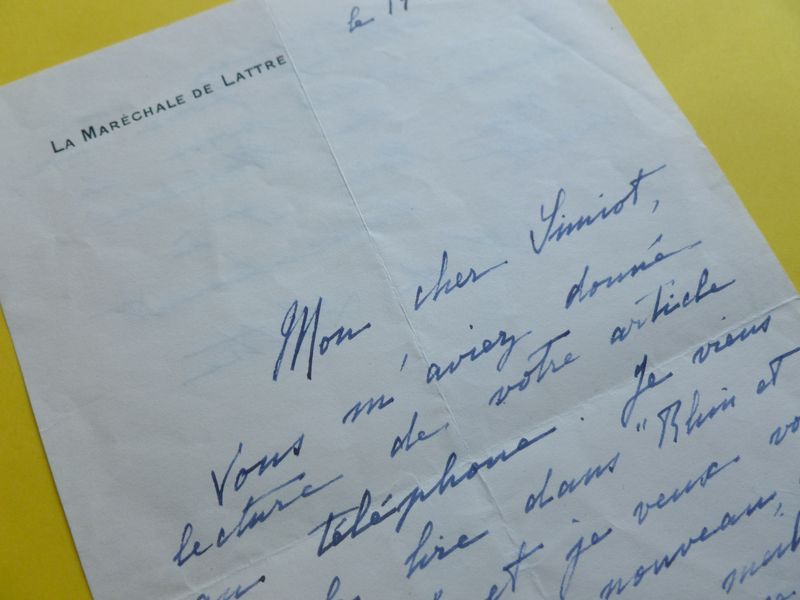 le 19
LA MARÉCHALE DE LATTRE
Mon cher Simiot,
Vous m'aviez donné
lecture de votre article
au téléphone. Je viens
lire dans "Rhin et
et je veux
nouveau,